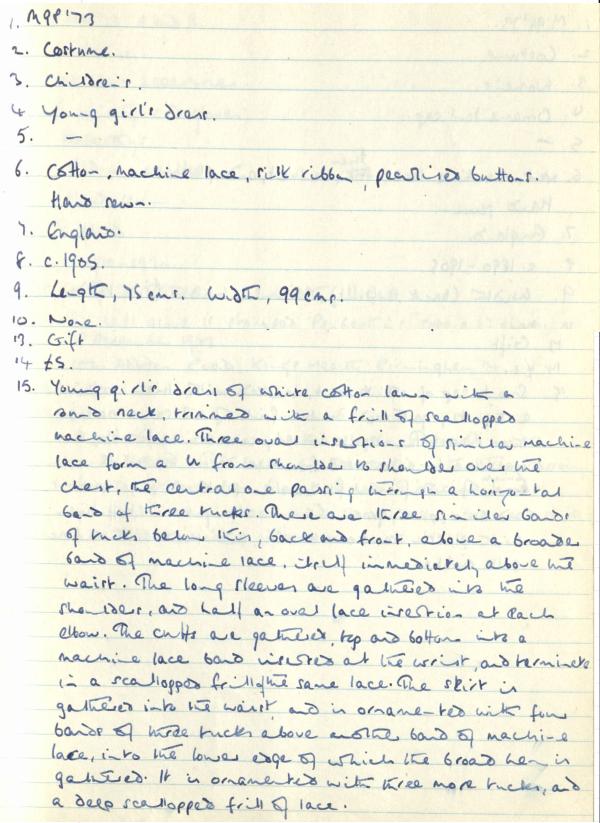 1. M99'73
2. Costume.
3. Children's.
4 Young girl's dress.
5. —
6. Cotton, machine lace, silk ribbon, pearlised buttons.
Hand sewn.
7. England.
8. c.1905.
9. Length, 75 cms. Width, 99 cms.
10. None.
13. Gift
14 £5.
15. Young girl's dress of white cotton lawn with a
round neck, trimmed with a frill of scallopped
machine lace. Three oval insertions of similar machine
lace form a U from shoulder to shoulder over the
chest, the central one passing through a horizontal
band of three tucks. There are three similar bands
of tucks below this, back and front, above a broader
band of machine lace, itself immediately above the
waist. The long sleeves are gathered into the
shoulders, and half an oval lace insertion at each
elbow. The cuffs are gathered, top and bottom into a
machine lace band inserted at the wrist, and terminate
in a scallopped frill of the same lace. The skirt is
gathered into the waist, and is ornamented with four
bands of three tucks above another band of machine
lace, into the lower edge of which the broad hem is
gathered. It is ornamented with three more tucks, and
a deep scallopped frill of lace.